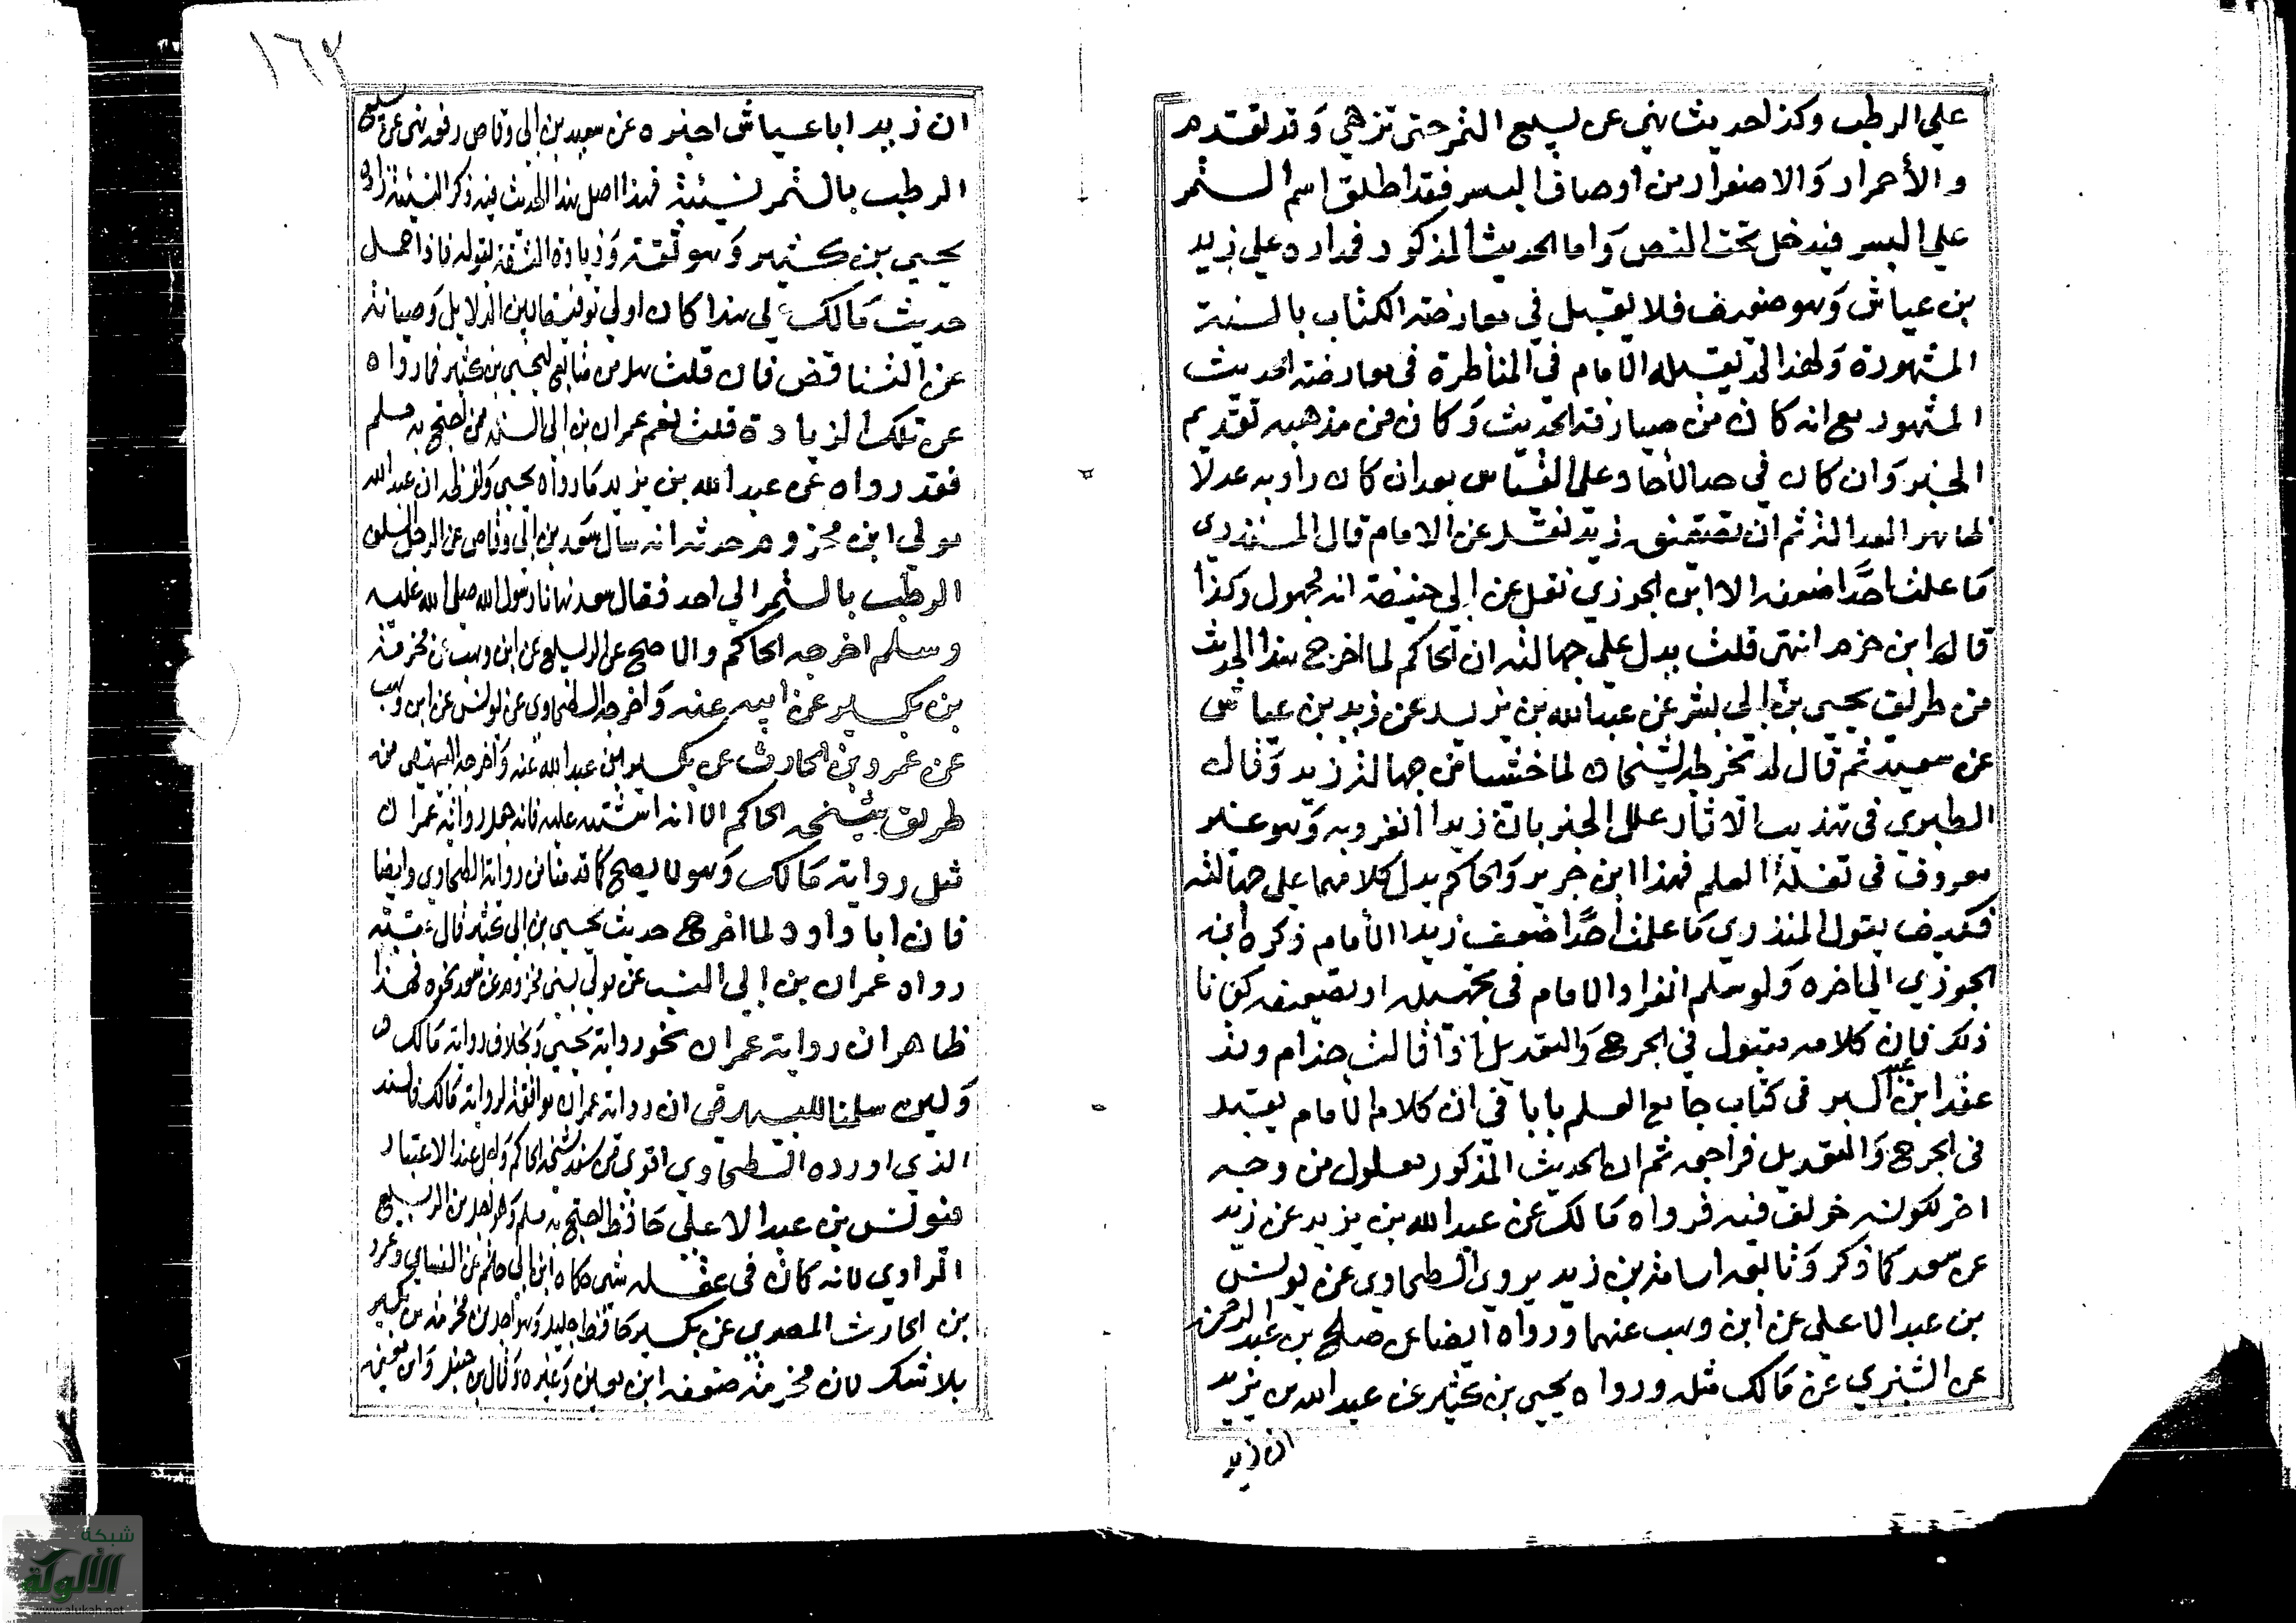 علي الرطب وكذا حديث نهي عن بيع الثمر حتى تزهي وقد تقدم
والأحمرار والاصفرار من اوصاف البسر فقد اطلق اسم التمر
علي البسر فيدخل تحت النص واما الحديث المذكور فمداره علي زيد
بن عياش وهو ضعيف فلا يقبل في معارضة الكتاب بالسنة
المشهورة ولهذا لم يقبله الامام في المناظرة في معارضة الحديث
المشهور مع انه كان من صيارفة الحديث وكان من مذهبه تقديم
الخبر وان كان في حد الآحاد على القياس بعد ان كان راويه عدلا
ظاهر العدالة ثم ان تضعيف زيد نقل عن الامام قال المنذري
ما علمت احدا ضعفه الا ابن الجوزي نقل عن ابي حنيفة انه مجهول وكذا
قاله ابن حزم انتهى قلت يدل علي جهالته ان الحاكم لما اخرج هذا الحديث
من طريق يحيى بن ابي كثير عن عبد الله بن يزيد عن زيد بن عياش
عن سعيد ثم قال لم يخرجه الشيخان لما خشيا من جهالة زيد وقال
الطبري في تهذيب الآثار علل الخبر بان زيدا انفرد به وهو غير
معروف في نقلة العلم فهذا ابن جرير والحاكم يدل كلامهما على جهالته
فكيف يقول المنذري ما علمت احدا ضعف زيدا الا الامام ذكره ابن
الجوزي الي اخره ولو سلم انفراد الامام في تجهيله او تضعيفه كفانا
ذلك فإن كلامه مقبول في الجرح والتعديل اذا قالت حذام وقد
عقد ابن عبد البر في كتاب جامع العلم بابا في ان كلام الامام يعتبر
في الجرح والتعديل فراجعه ثم ان الحديث المذكور معلول من وجه
اخر لكونه خولف فيه فرواه مالك عن عبد الله بن يزيد عن زيد
عن سعد كما ذكر وتابعه اسامة بن زيد يروي الطحاوي عن يونس
بن عبد الاعلي عن ابن وهب عنهما ورواه ايضا عن صالح بن عبد الرحمن
عن مالك مثله ورواه يحيى بن كثير عن عبد الله بن يزيد
ان زيد
١٦٢
ان زيد ابا عياش اخبره عن سعيد بن ابي وقاص رفعه نهى عن بيع
الرطب بالتمر نسيئة فهذا اصل هذا الحديث فيه ذكر النسيئة زاده
يحيى بن كثير وهو ثقة وزيادة الثقة مقبولة فاذا حمل
حديث مالك علي هذا كان اولي توفيقا بين الدلايل وصيانة
عن التناقض فان قلت هل من متابع ليحيى بن كثير فما رواه
عن تلك الزيادة قلت نعم عمران بن ابي انس ممن احتج به مسلم
فقد رواه عن عبد الله بن يزيد كما رواه يحيى ولفظه ان عبد الله
مولي ابن مخزوم حدثه انه سال سعد بن ابي وقاص عن الرجل يسلف
الرطب بالتمر الي احد فقال سعد نهانا رسول الله صلى الله عليه
وسلم اخرجه الحاكم والاصح عن الربيع عن ابن وهب عن مخرمة
بن بكير عن ابيه عنه واخرجه الطحاوي عن يونس عن ابن وهب
عن عمرو بن الحارث عن بكير بن عبد الله عنه واخرجه البيهقي من
طريق شيخه الحاكم الا انه اشتبه عليه فانه جعل رواية عمران
مثل رواية مالك وهو لا يصح كما قدمنا من رواية الطحاوي وايضا
فان ابا داود لما اخرج حديث يحيى بن ابي كثير قال عقبه
رواه عمران بن ابي انس عن مولي لبني مخزوم عن سعد نحوه فهذا
ظاهر ان رواية عمران نحو رواية يحيى وبخلاف رواية مالك
ولين سلمنا للبيهقي ان رواية عمران موافقة لرواية مالك فالسند
الذي اورده الطحاوي اقوي من سند شيخه الحاكم عند الاعتبار
فيونس بن عبد الاعلي حافظ احتج به مسلم وهو اجل من الربيع
الراوي لانه كان في عقله شي حكاه ابن ابي حاتم عن النسايي وعمرو
بن الحارث المصري عن بكير حافظ جليل وهو اجل من مخرمة بن بكير
بلا شك لان مخرمة ضعفه ابن معين وغيره وقال بن حنبل وابن معين
شبكة
الألوكة
www.alukah.net